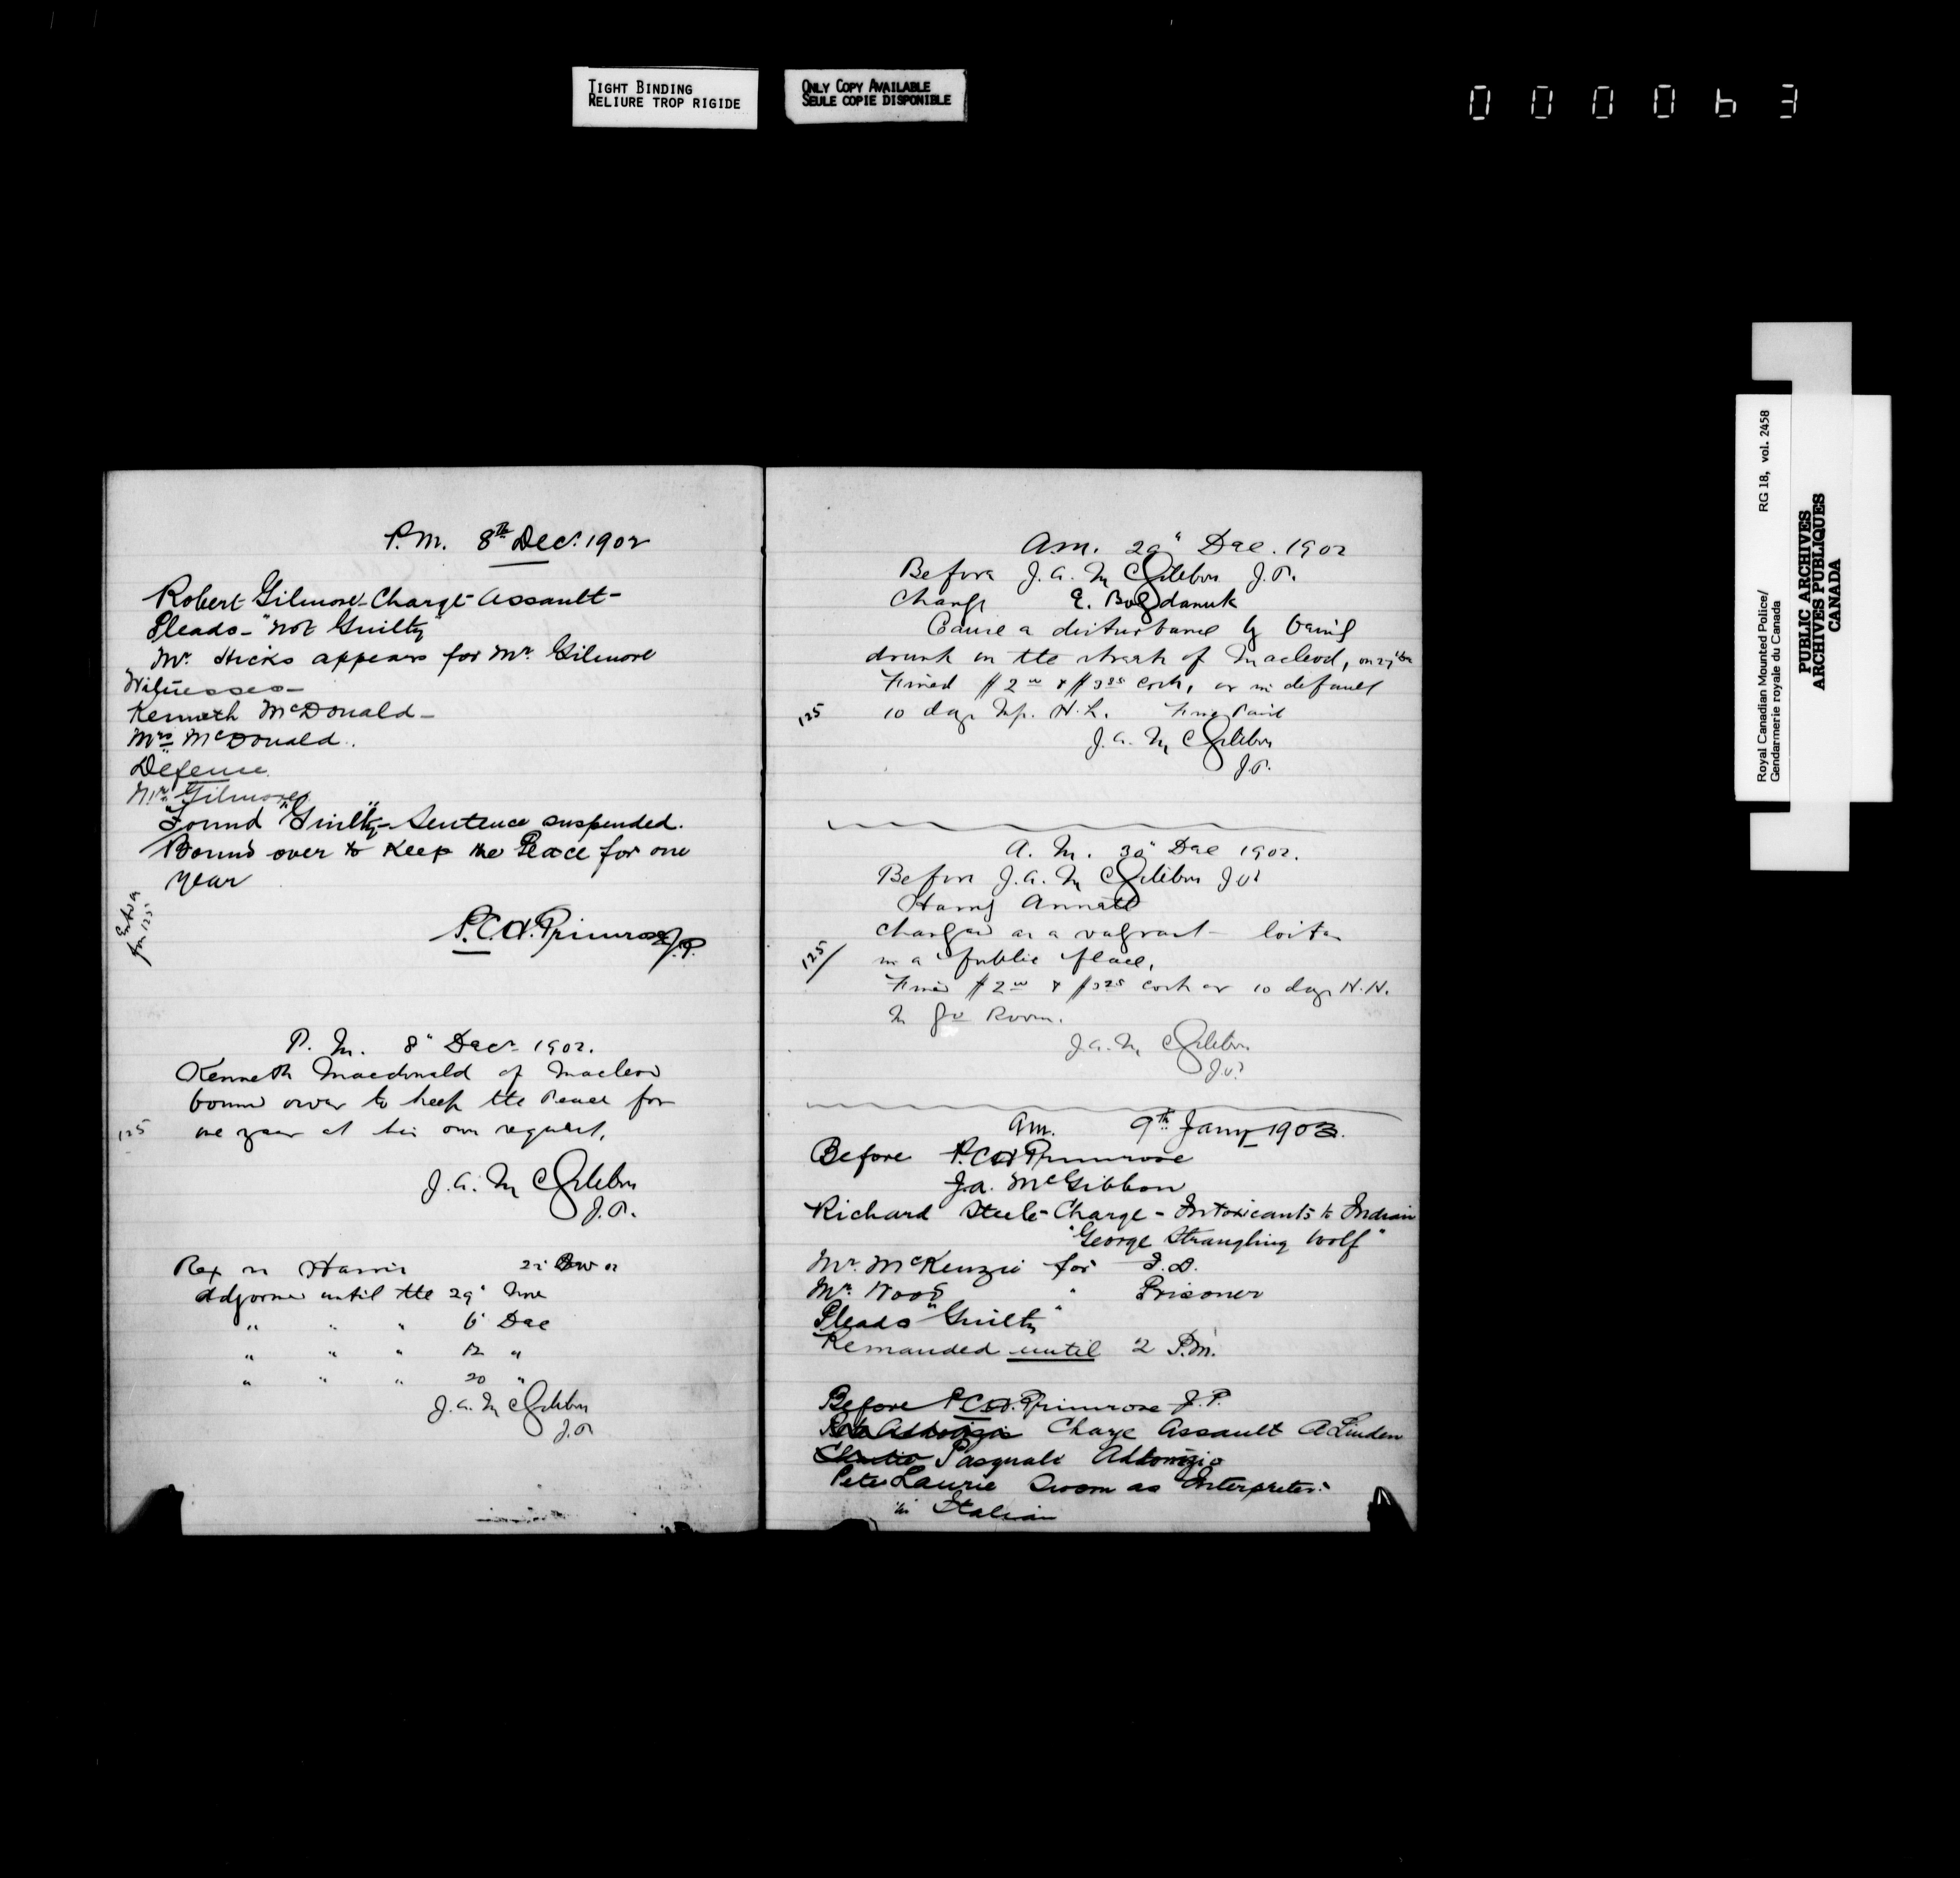 TIGHT BINDING
RELIURE TROP RIGIDE
ONLY COPY AVAILABLE
SEULE COPIE DISPONIBLE
000063
P.M. 8th Dec. 1902
Robert Gilmore - Charge - Assault -
Pleads - "Not Guilty"
Mr. Hicks appears for Mr. Gilmore
Witnesses -
Kenneth McDonald -
Mrs McDonald.
Defence
Mr. Gilmore
Found "Guilty" - Sentence suspended.
Bound over to Keep the Peace for one
year
125
P.C.H. Primrose J.P.
P.M. 8" Decr 1902.
Kenneth Macdonald of Macleod
bound over to keep the Peace for
125 one year at his own request.
J.A. McGibbon
J.P.
Rex vs Harris 22
Adjorned until the 29"
" " " 6 Dec
" " " 12 "
" " " 20 "
J.A. McGibbon
J.P.
A.M. 29" Dec. 1902
Before J.A. McGibbon J.P.
Charge E. Bogdanuk
Cause a disturbance by being
drunk on the streets of Macleod, on 27"
Fined $2 00 & $3 costs, or in default
125 10 days Imp. H.L. Fine Paid
J.A. McGibbon
J.P.
A.M. 30" Dec 1902.
Before J.A. McGibbon J.P.
Harry Annatt
charged as a vagrant - loiter
125/ in a public place.
Fined $2 00 & $3 25 costs or 10 days
Room.
J.A. McGibbon
J.P.
Am. 9th Jany 1903.
Before P.C.H. Primrose
J.A. McGibbon
Richard Steele - Charge - Intoxicants to Indian
"George Strangling Wolf"
Mr. McKenzie for
Mr. Wood " Prisoner
Pleads "Guilty"
Remanded until 2 P.M.
Before P.C.H. Primrose J.P.
Charge Assault A Linden
Pasquale Addorizio
Pete Laurie Sworn as Interpreter
in Italian
Royal Canadian Mounted Police/ RG 18, vol. 2458
Gendarmerie royale du Canada
PUBLIC ARCHIVES
ARCHIVES PUBLIQUES
CANADA